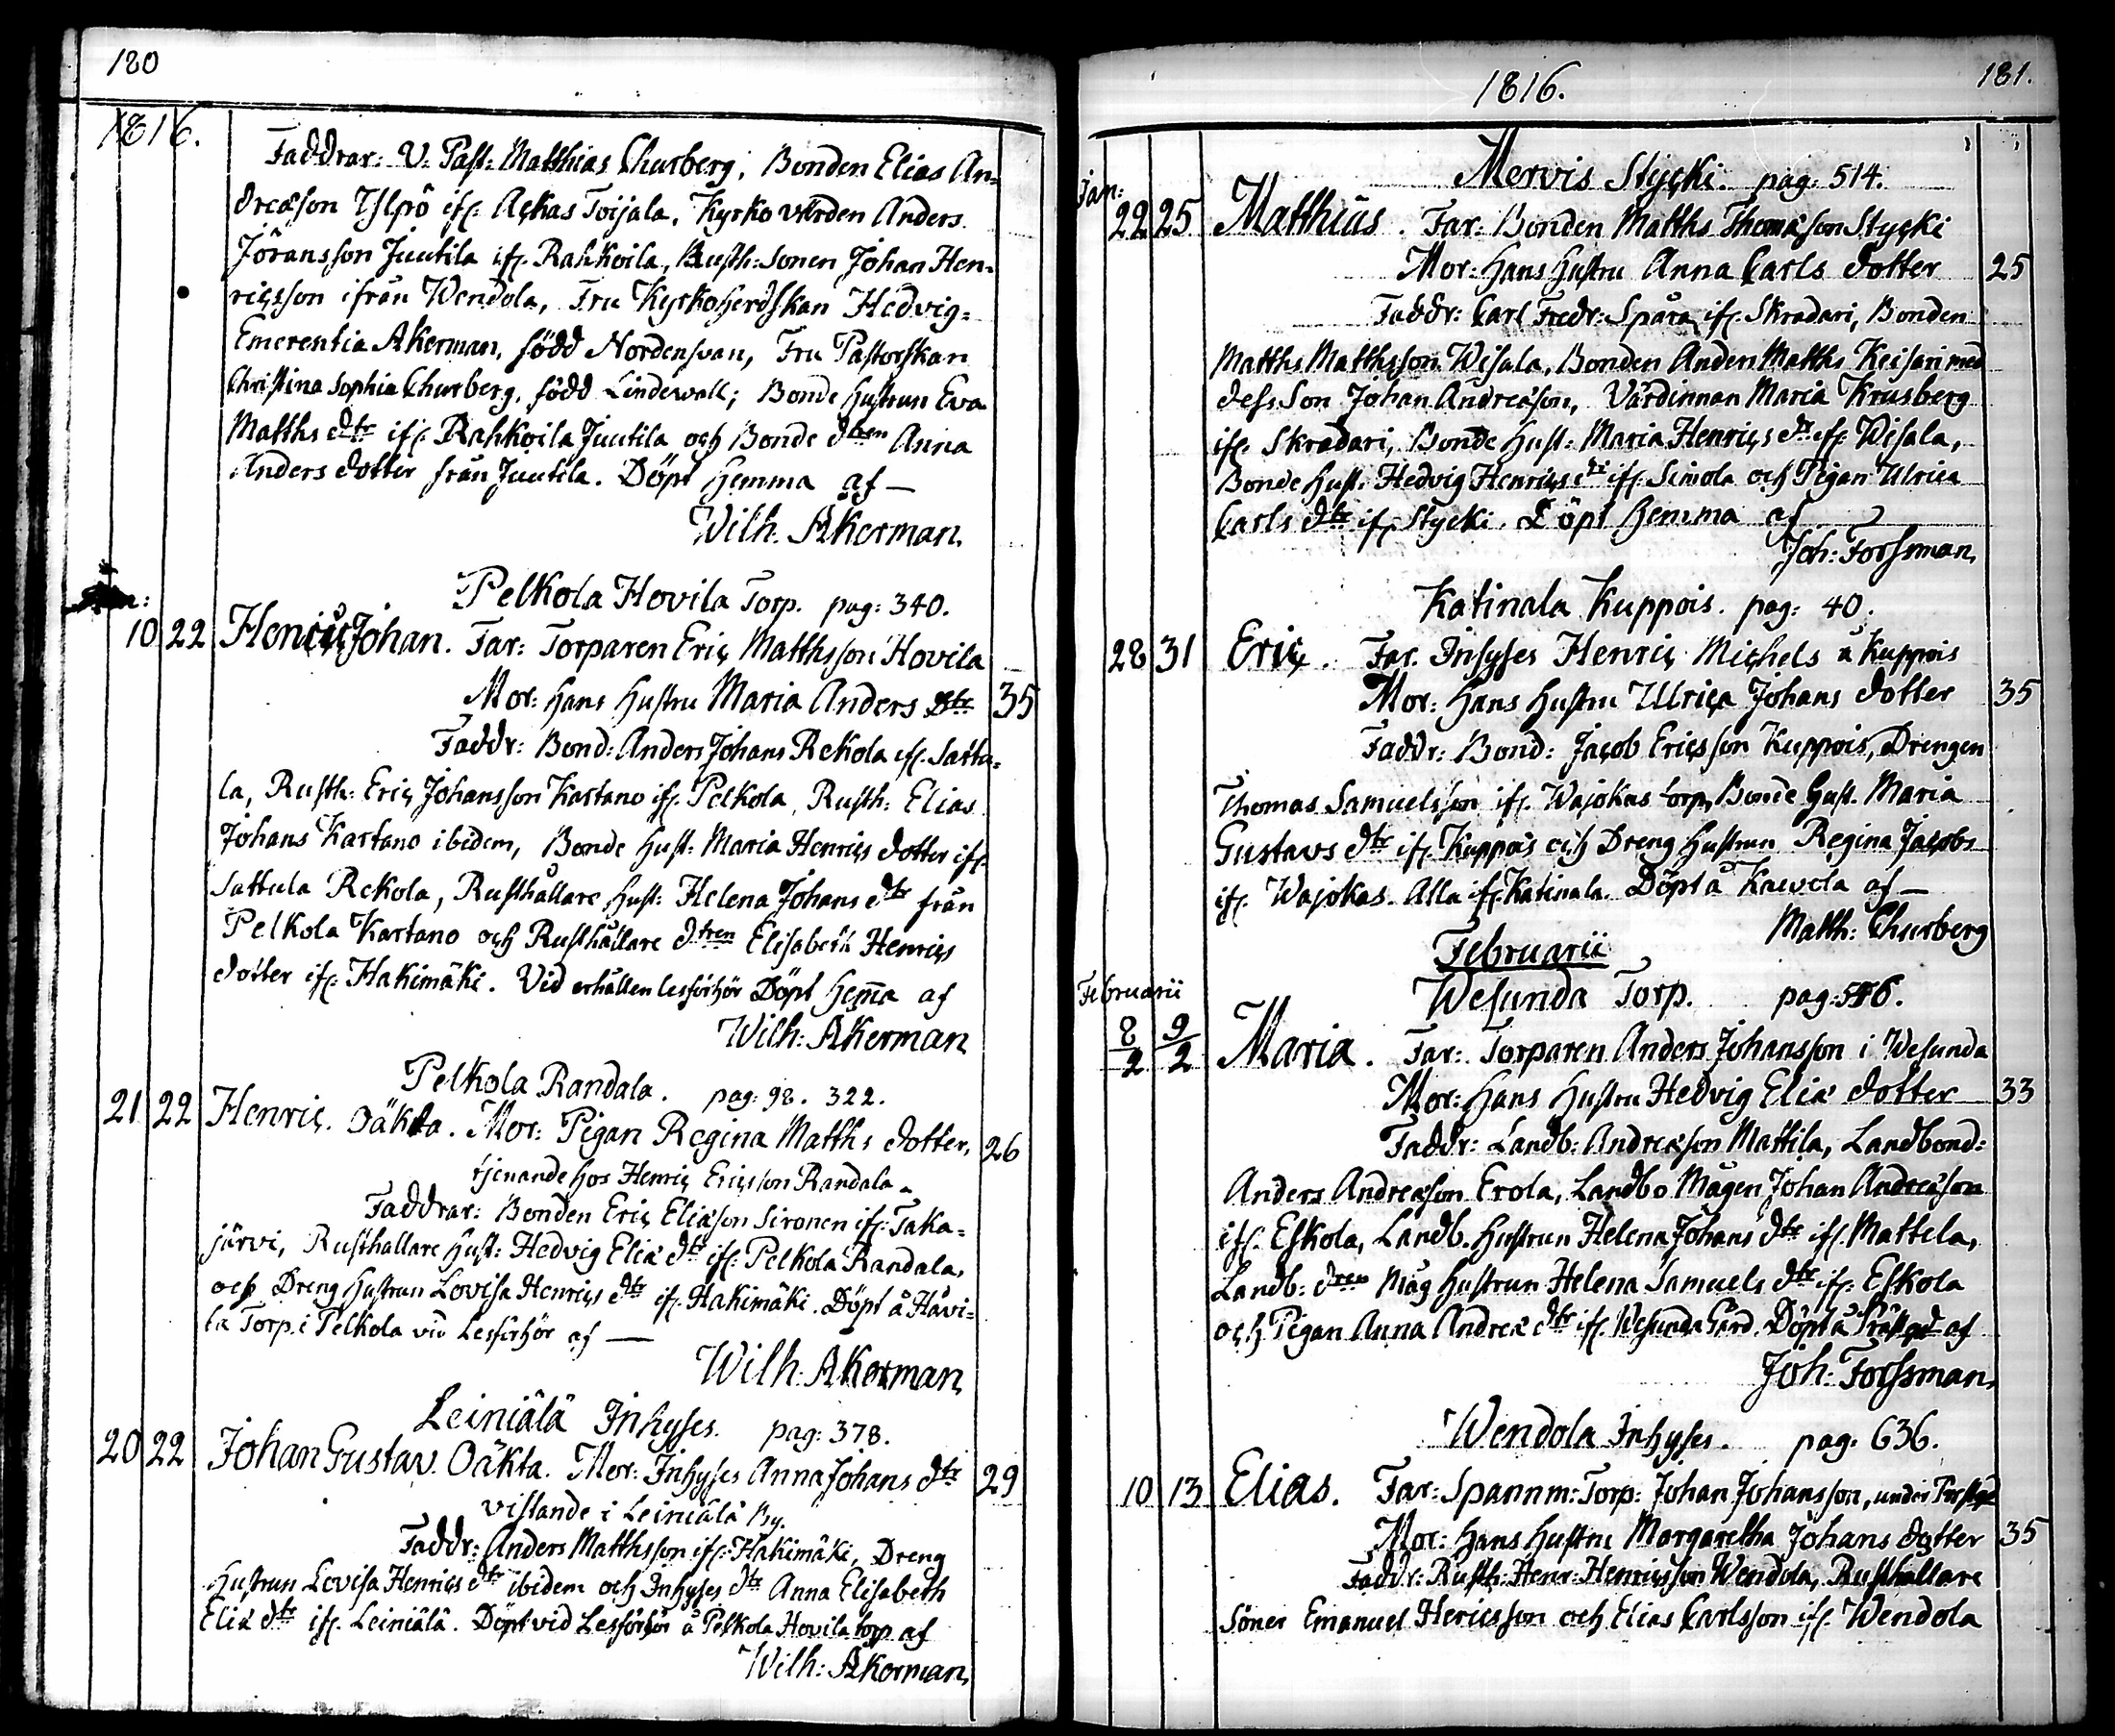 180
1816.
Faddrar: V: Past: Matthias Churberg, Bonden Elias An=
dreæson Ylpö ifr. Ackas Toijala, Kyrko värden Anders
Jöransson Juutila ifr. Rahkoila, Rusth: Sonen Johan Hen=
ricsson ifrån Wendola, Fru Kyrkoherdskan Hedvig=
Emerentia Åkerman, född Nordensvan, Fru Pastorskan
Christina Sophia Churberg, född Lindewall; Bonde Hustrun Eva
Matths dtr ifr. Rahkoila Juutila och Bonde dtren Anna
Anders dotter från Juutila. Döpt hemma af —
Wilh. Åkerman.
Pelkola Hovila Torp. pag: 340.
10 22 Henric Johan. Far: Torparen Eric Matthsson Hovila
Mor: Hans Hustru Maria Anders dtr 35
Faddr: Bond: Anders Johans Rekola ifr. Sattu=
la, Rusth: Eric Johansson Kartano ifr. Pelkola, Rusth: Elias
Johans Kartano ibidem, Bonde Hust: Maria Henrics dotter ifr.
Sattula Rekola, Rusthållare Hust: Helena Johans dtr från
Pelkola Kartano och Rusthållare dtren Elisabeth Henrics
dotter ifr. Hakimäki. Vid erhållen lesförhör Döpt hem̄a af
Wilh: Åkerman
Pelkola Randala. pag: 98. 322.
21 22 Henric. Oäkta. Mor: Pigan Regina Matths dotter, 26
tjenande hos Henric Ericsson Randala.
Faddrar: Bonden Eric Eliæson Sironen ifr. Taka=
järvi, Rusthallare Hust: Hedvig Eliæ dtr ifr. Pelkola Randala,
och Dreng Hustrun Lovisa Henrics dtr ifr. Hakimäki. Döpt å Håvi=
la Torp i Pelkola vid Lesförhör af —
Wilh: Åkerman
Leiniälä Inhyses. pag: 378.
20 22 Johan Gustav. Oäkta. Mor: Inhyses Anna Johans dtr 29
vistande i Leiniälä By.
Faddr: Anders Matthsson ifr. Hakimäki, Dreng
Hustrun Lovisa Henrics dtr ibidem och Inhyses dtr Anna Elisabeth
Eliæ dtr ifr. Leiniälä. Döpt vid Lesförhör å Pelkola Hovila torp af
Wilh: Åkerman,
1816.
181.
Mervis Stycki. pag: 514.
Jan:
22 25 Matthias. Far: Bonden Matths Thomæson Stycki
Mor: Hans Hustru Anna Carls dotter 25
Faddr: Carl Fredr: Spåra ifr. Skradari, Bonden
Matths Matthsson Wisala, Bonden Anden Matths Keisari med
dess Son Johan Andreæson, Värdinnan Maria Krusberg
ifr. Skradari, Bonde Hust: Maria Henrics dtr ifr. Wisala,
Bonde Hust: Hedvig Henrics dtr ifr. Simola och Pigan Ulrica
Carls dtr ifr. Stycki. Döpt hemma af
Joh: Forssman,
Katinala Kuppois. pag: 40.
28 31 Eric. Far. Inhyses Henric Michels å Kuppois
Mor: Hans Hustru Ulrica Johans dotter 35
Faddr: Bond: Jacob Ericsson Kuppois, Drengen
Thomas Samuelsson ifr. Wajokas torp, Bonde Hust. Maria
Gustavs dtr ifr. Kuppois och Dreng Hustrun Regina Jacobs
ifr. Wajokas. Alla ifr. Katinala. Döpt å Kawola af —
Matth: Churberg
Februarii
Februarii
Wesunda Torp. pag:
8/2 9/2 Maria. Far: Torparen Anders Johansson i Wesunda
Mor: Hans Hustru Hedvig Eliæ dotter 33
Faddr: Landb: Andreæson Mattila, Landbond:
Anders Andreæson Erola, Landbo Mågen Johan Andreæson
ifr. Eskola, Landb. Hustrun Helena Johans dtr ifr. Mattila,
Landb: dren Måg Hustrun Helena Samuels dtr ifr. Eskola
och Pigan Anna Andreæ dtr ifr. Wesunda Gård. Döpt å Prästgd af
Joh: Forssman,
Wendola Inhyses. pag: 636.
10 13 Elias. Far: Spannm: Torp: Johan Johansson, under
Mor: Hans Hustru Margaretha Johans dotter 35
Faddr: Rusth: Henr: Henricsson Wendola, Rusthållare
Söner Emanuel Hericsson och Elias Carlsson ifr. Wendola